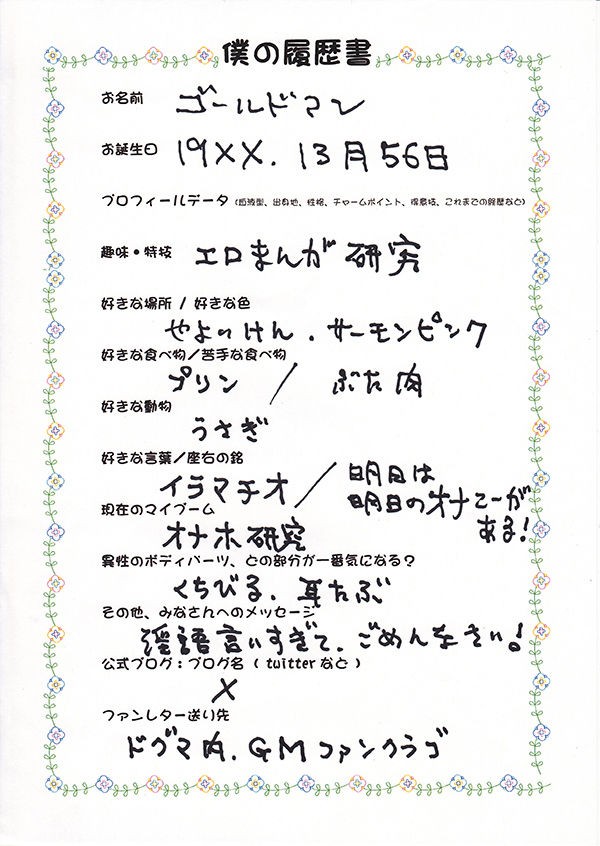 僕の履歴書
お名前 ゴールドマン
お誕生日 19XX.13月56日
プロフィールデータ(血液型、出身地、性格、チャームポイント、得意技、これまでの経歴など)
趣味・特技 エロまんが研究
好きな場所 / 好きな色
やよいけん.サーモンピンク
好きな食べ物/苦手な食べ物
プリン / ぶた肉
好きな動物
うさぎ
好きな言葉/座右の銘
イラマチオ / 明日は
明日のオナニーが
ある!
現在のマイブーム
オナホ研究
異性のボディパーツ、どの部分が一番気になる?
くちびる.耳たぶ
その他、みなさんへのメッセージ
淫語言いすぎて.ごめんなさい!
公式ブログ:ブログ名 ( twitterなど )
X
ファンレター送り先
ドグマ内.GMファンクラブ